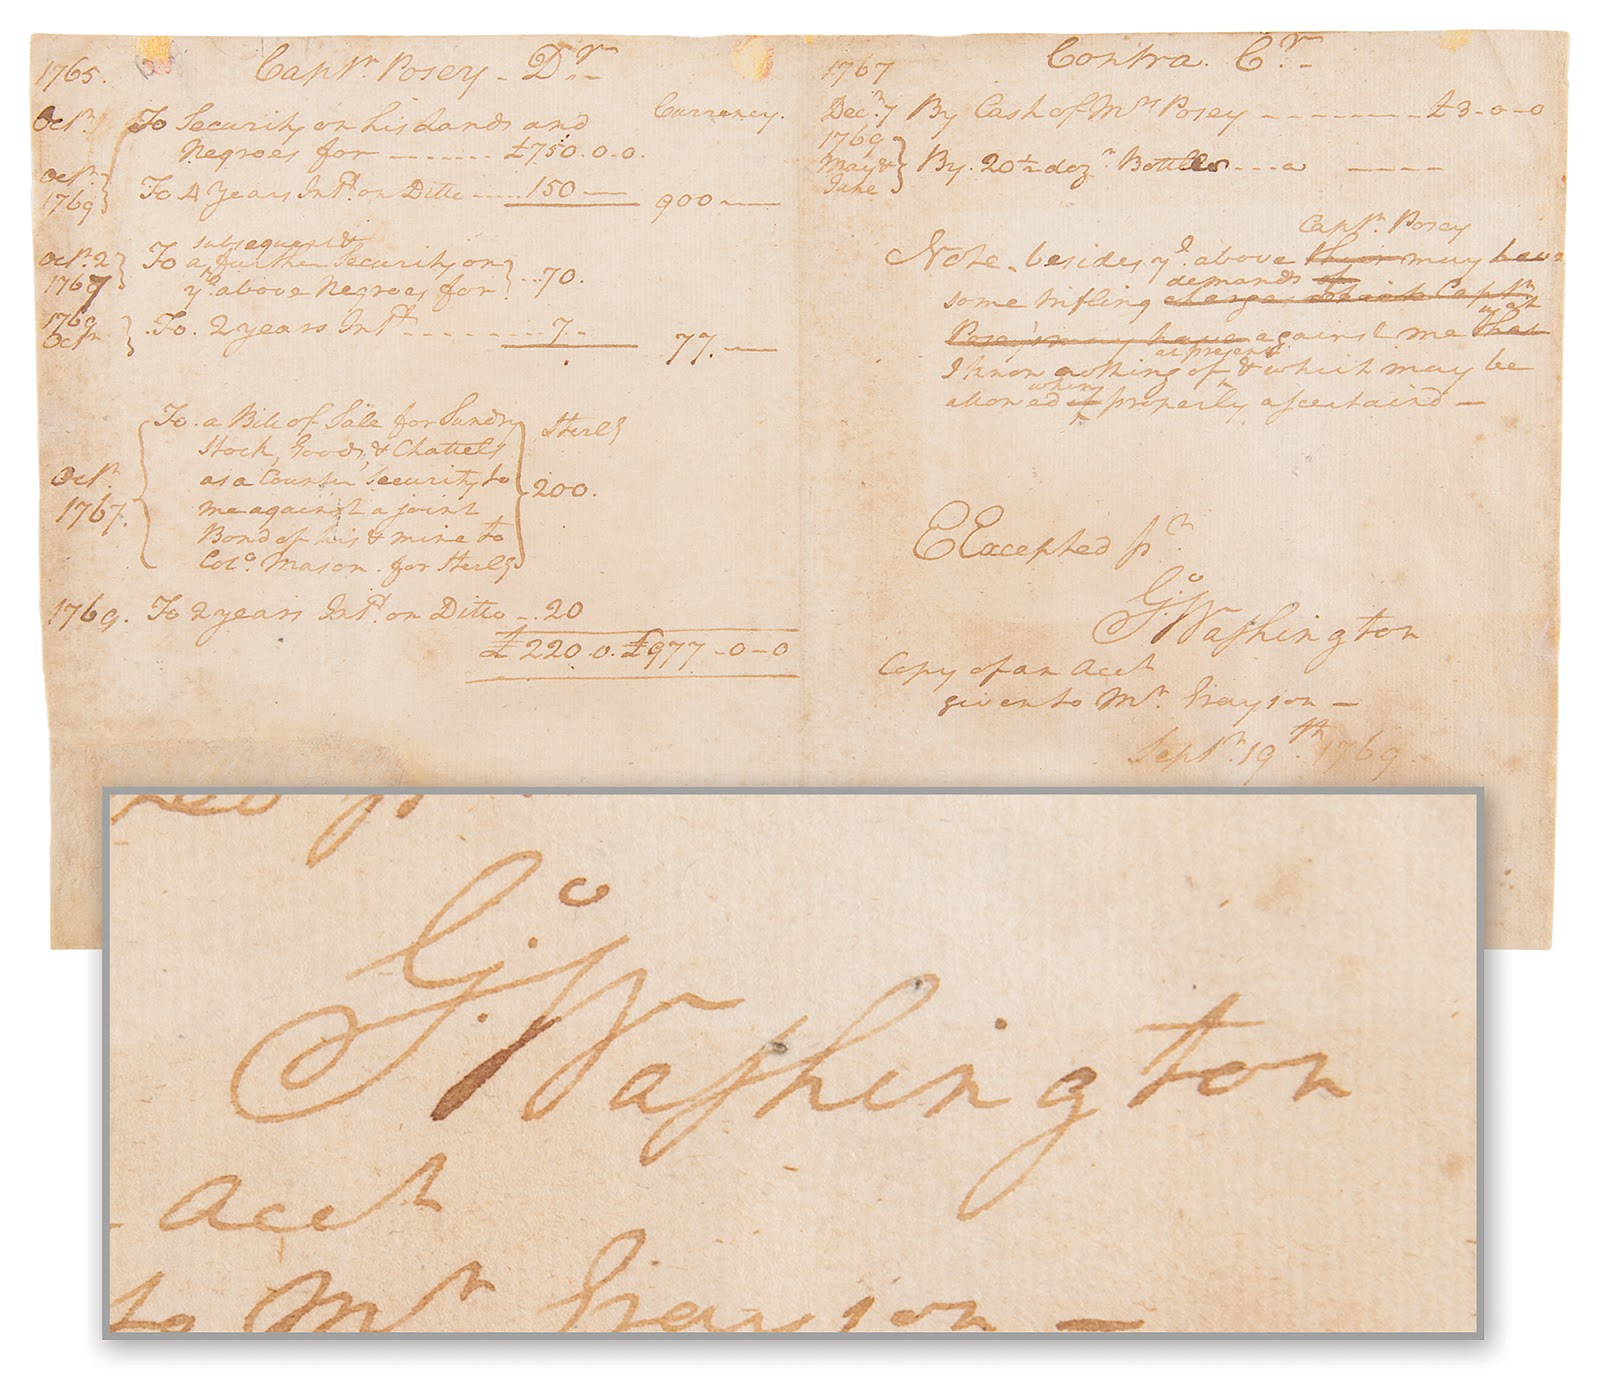 1765. Captn. Posey - Dr.
Currency.
Octr. To Security on his Lands and
Negroes for ------- £750.0.0.
Octr. 1769 To 4 years Intt. on Ditto ---- 150 — 900 —
Octr. 2 1767 To a subsequent & further Security on
ye. above Negroes for ... 70.
1769 Octr. To. 2 years Intt. ------- 7 - 77. —
Octr. 1767. To a Bill of Sale for Sundry
Stock, Goods, & Chattels
as a Counter Security to
me against a joint
Bond of his & mine to
Colo. Mason. for Sterlg
Sterlg
200.
1769. To 2 years Intt. on Ditto -- 20
£220.0. £977-0-0
1767 Contra. Cr. -
Decr. 7 By Cash of Mrs Posey -------- £3-0-0
1769 May & June By. 20½ doz. Bottles --- a ----
Captn. Posey
Note, besides ye. above their may have
demands of
some trifling charges which Captn
Posey's may have against me that
yt
at present
I know nothing of & which may be
when
allowed if properly ascertaind —
EExcepted pr.
Go. Washington
Copy of an Acct
given to Mr. Grayson —
Septr. 19th. 1769
Go. Washington
Acct
to Mr Grayson —